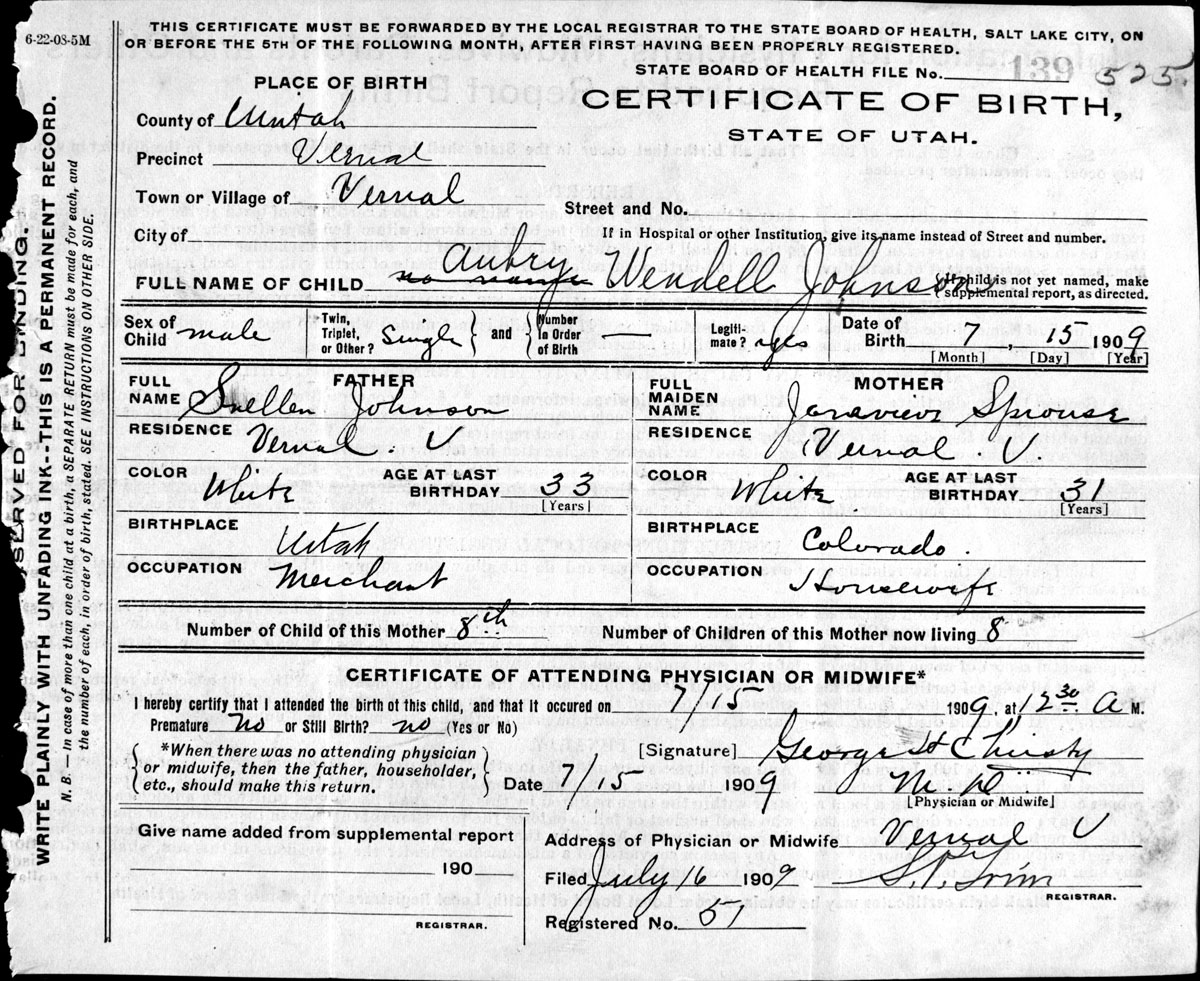 6-22-08-5M
THIS CERTIFICATE MUST BE FORWARDED BY THE LOCAL REGISTRAR TO THE STATE BOARD OF HEALTH, SALT LAKE CITY, ON
OR BEFORE THE 5TH OF THE FOLLOWING MONTH, AFTER FIRST HAVING BEEN PROPERLY REGISTERED.
STATE BOARD OF HEALTH FILE No. 139 525
PLACE OF BIRTH
CERTIFICATE OF BIRTH,
STATE OF UTAH.
County of Uintah
Precinct Vernal
Town or Village of Vernal
Street and No.
City of
If in Hospital or other Institution, give its name instead of Street and number.
FULL NAME OF CHILD no name Aubry Wendell Johnson
{If child is not yet named, make
supplemental report, as directed.
Sex of Child male
Twin, Triplet, or Other? single } and { Number in Order of Birth
Legitimate? yes
Date of Birth 7, 15 1909
[Month] [Day] [Year]
FATHER
FULL NAME Snellen Johnson
RESIDENCE Vernal. U
COLOR White AGE AT LAST BIRTHDAY 33
[Years]
BIRTHPLACE Utah
OCCUPATION Merchant
MOTHER
FULL MAIDEN NAME Jenavieve Sprouse
RESIDENCE Vernal U
COLOR White AGE AT LAST BIRTHDAY 31
[Years]
BIRTHPLACE Colorado.
OCCUPATION Housewife
Number of Child of this Mother 8th Number of Children of this Mother now living 8
CERTIFICATE OF ATTENDING PHYSICIAN OR MIDWIFE*
I hereby certify that I attended the birth of this child, and that it occured on 7/15 1909, at 12 30 A M.
Premature No or Still Birth? no (Yes or No)
{*When there was no attending physician
or midwife, then the father, householder,
etc., should make this return.}
[Signature] George H Christy
Date 7/15 1909 M.D
[Physician or Midwife]
Give name added from supplemental report
190
REGISTRAR.
Address of Physician or Midwife Vernal U
Filed July 16 1909
REGISTRAR.
Registered No. 51
RESERVED FOR BINDING.
WRITE PLAINLY WITH UNFADING INK--THIS IS A PERMANENT RECORD.
N. B. — In case of more than one child at a birth, a SEPARATE RETURN must be made for each, and
the number of each, in order of birth, stated. SEE INSTRUCTIONS ON OTHER SIDE.